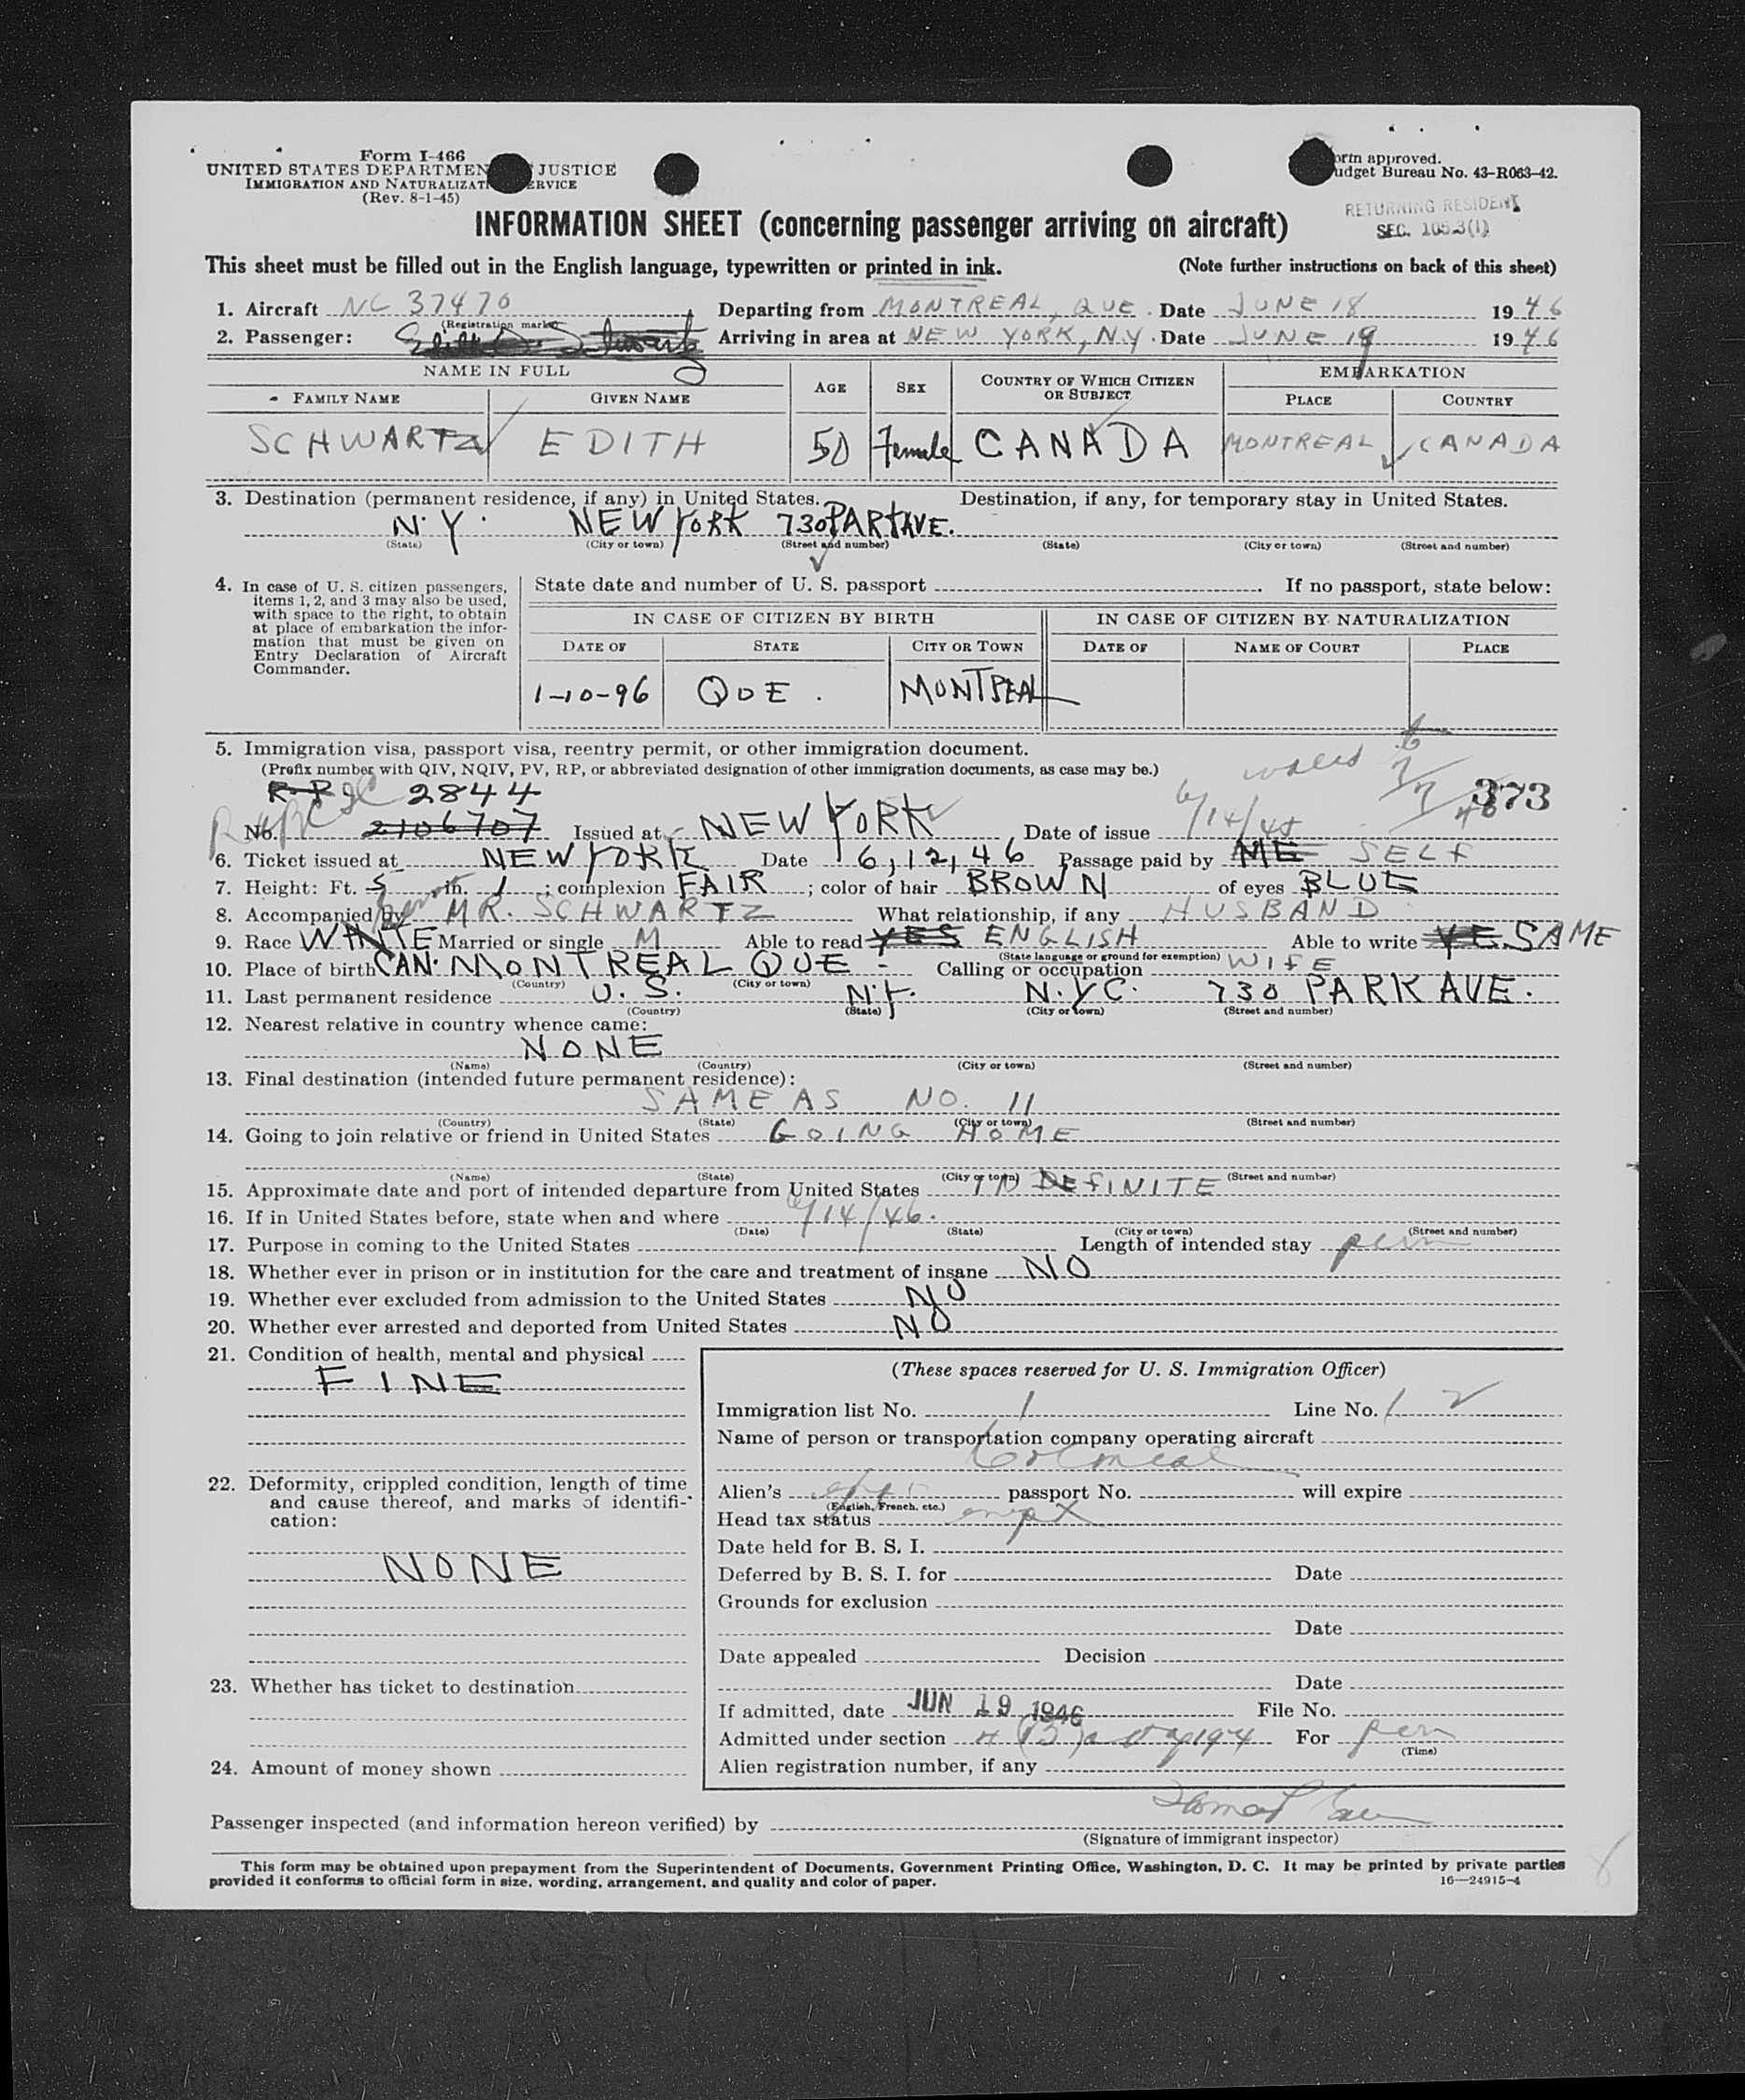 Form I-466
UNITED STATES DEPARTMEN JUSTICE
IMMIGRATION AND NATURALIZATI ERVICE
(Rev. 8-1-45)
orm approved.
udget Bureau No. 43-R063-42.
RETURNING RESIDENT
SEC. 105.3(1)
INFORMATION SHEET (concerning passenger arriving on aircraft)
This sheet must be filled out in the English language, typewritten or printed in ink. (Note further instructions on back of this sheet)
1. Aircraft NC 37470 Departing from MONTREAL, QUE. Date JUNE 18 1946
(Registration marks)
2. Passenger: Arriving in area at NEW YORK, N.Y. Date JUNE 19 1946
NAME IN FULL AGE SEX COUNTRY OF WHICH CITIZEN OR SUBJECT EMBARKATION
FAMILY NAME GIVEN NAME PLACE COUNTRY
SCHWARTZ EDITH 50 Female CANADA MONTREAL CANADA
3. Destination (permanent residence, if any) in United States. Destination, if any, for temporary stay in United States.
N.Y. NEW YORK 730 PARK AVE.
(State) (City or town) (Street and number) (State) (City or town) (Street and number)
4. In case of U. S. citizen passengers, items 1, 2, and 3 may also be used, with space to the right, to obtain at place of embarkation the information that must be given on Entry Declaration of Aircraft Commander.
State date and number of U. S. passport If no passport, state below:
IN CASE OF CITIZEN BY BIRTH IN CASE OF CITIZEN BY NATURALIZATION
DATE OF STATE CITY OR TOWN DATE OF NAME OF COURT PLACE
1-10-96 QUE. MONTREAL
5. Immigration visa, passport visa, reentry permit, or other immigration document.
(Prefix number with QIV, NQIV, PV, RP, or abbreviated designation of other immigration documents, as case may be.)
2844 373
No. 2106707 Issued at NEW YORK Date of issue 6/14/45
6. Ticket issued at NEW YORK Date 6, 12, 46 Passage paid by ME SELF
7. Height: Ft. 5 In. 1; complexion FAIR; color of hair BROWN of eyes BLUE
8. Accompanied by MR. SCHWARTZ What relationship, if any HUSBAND
9. Race WHITE Married or single M Able to read YES ENGLISH Able to write YES SAME
(State language or ground for exemption)
10. Place of birth CAN. MONTREAL QUE Calling or occupation WIFE
(Country) (City or town)
11. Last permanent residence U. S. N.Y. N.Y.C. 730 PARK AVE.
(Country) (State) (City or town) (Street and number)
12. Nearest relative in country whence came:
NONE
(Name) (Country) (City or town) (Street and number)
13. Final destination (intended future permanent residence):
SAME AS NO. 11
(Country) (State) (City or town) (Street and number)
14. Going to join relative or friend in United States GOING HOME
(Name) (State) (City or town) (Street and number)
15. Approximate date and port of intended departure from United States INDEFINITE
16. If in United States before, state when and where 6/14/46.
(Date) (State) (City or town) (Street and number)
17. Purpose in coming to the United States Length of intended stay perm
18. Whether ever in prison or in institution for the care and treatment of insane NO
19. Whether ever excluded from admission to the United States NO
20. Whether ever arrested and deported from United States NO
21. Condition of health, mental and physical
FINE
22. Deformity, crippled condition, length of time and cause thereof, and marks of identification:
NONE
23. Whether has ticket to destination
24. Amount of money shown
(These spaces reserved for U. S. Immigration Officer)
Immigration list No. 1 Line No. 2
Name of person or transportation company operating aircraft
Colonial
Alien's passport No. will expire
(English, French, etc.)
Head tax status
Date held for B. S. I.
Deferred by B. S. I. for Date
Grounds for exclusion
Date
Date appealed Decision
Date
If admitted, date JUN 19 1946 File No.
Admitted under section For perm
(Time)
Alien registration number, if any
Passenger inspected (and information hereon verified) by
(Signature of immigrant inspector)
This form may be obtained upon prepayment from the Superintendent of Documents, Government Printing Office, Washington, D. C. It may be printed by private parties
provided it conforms to official form in size, wording, arrangement, and quality and color of paper. 16—24915-4